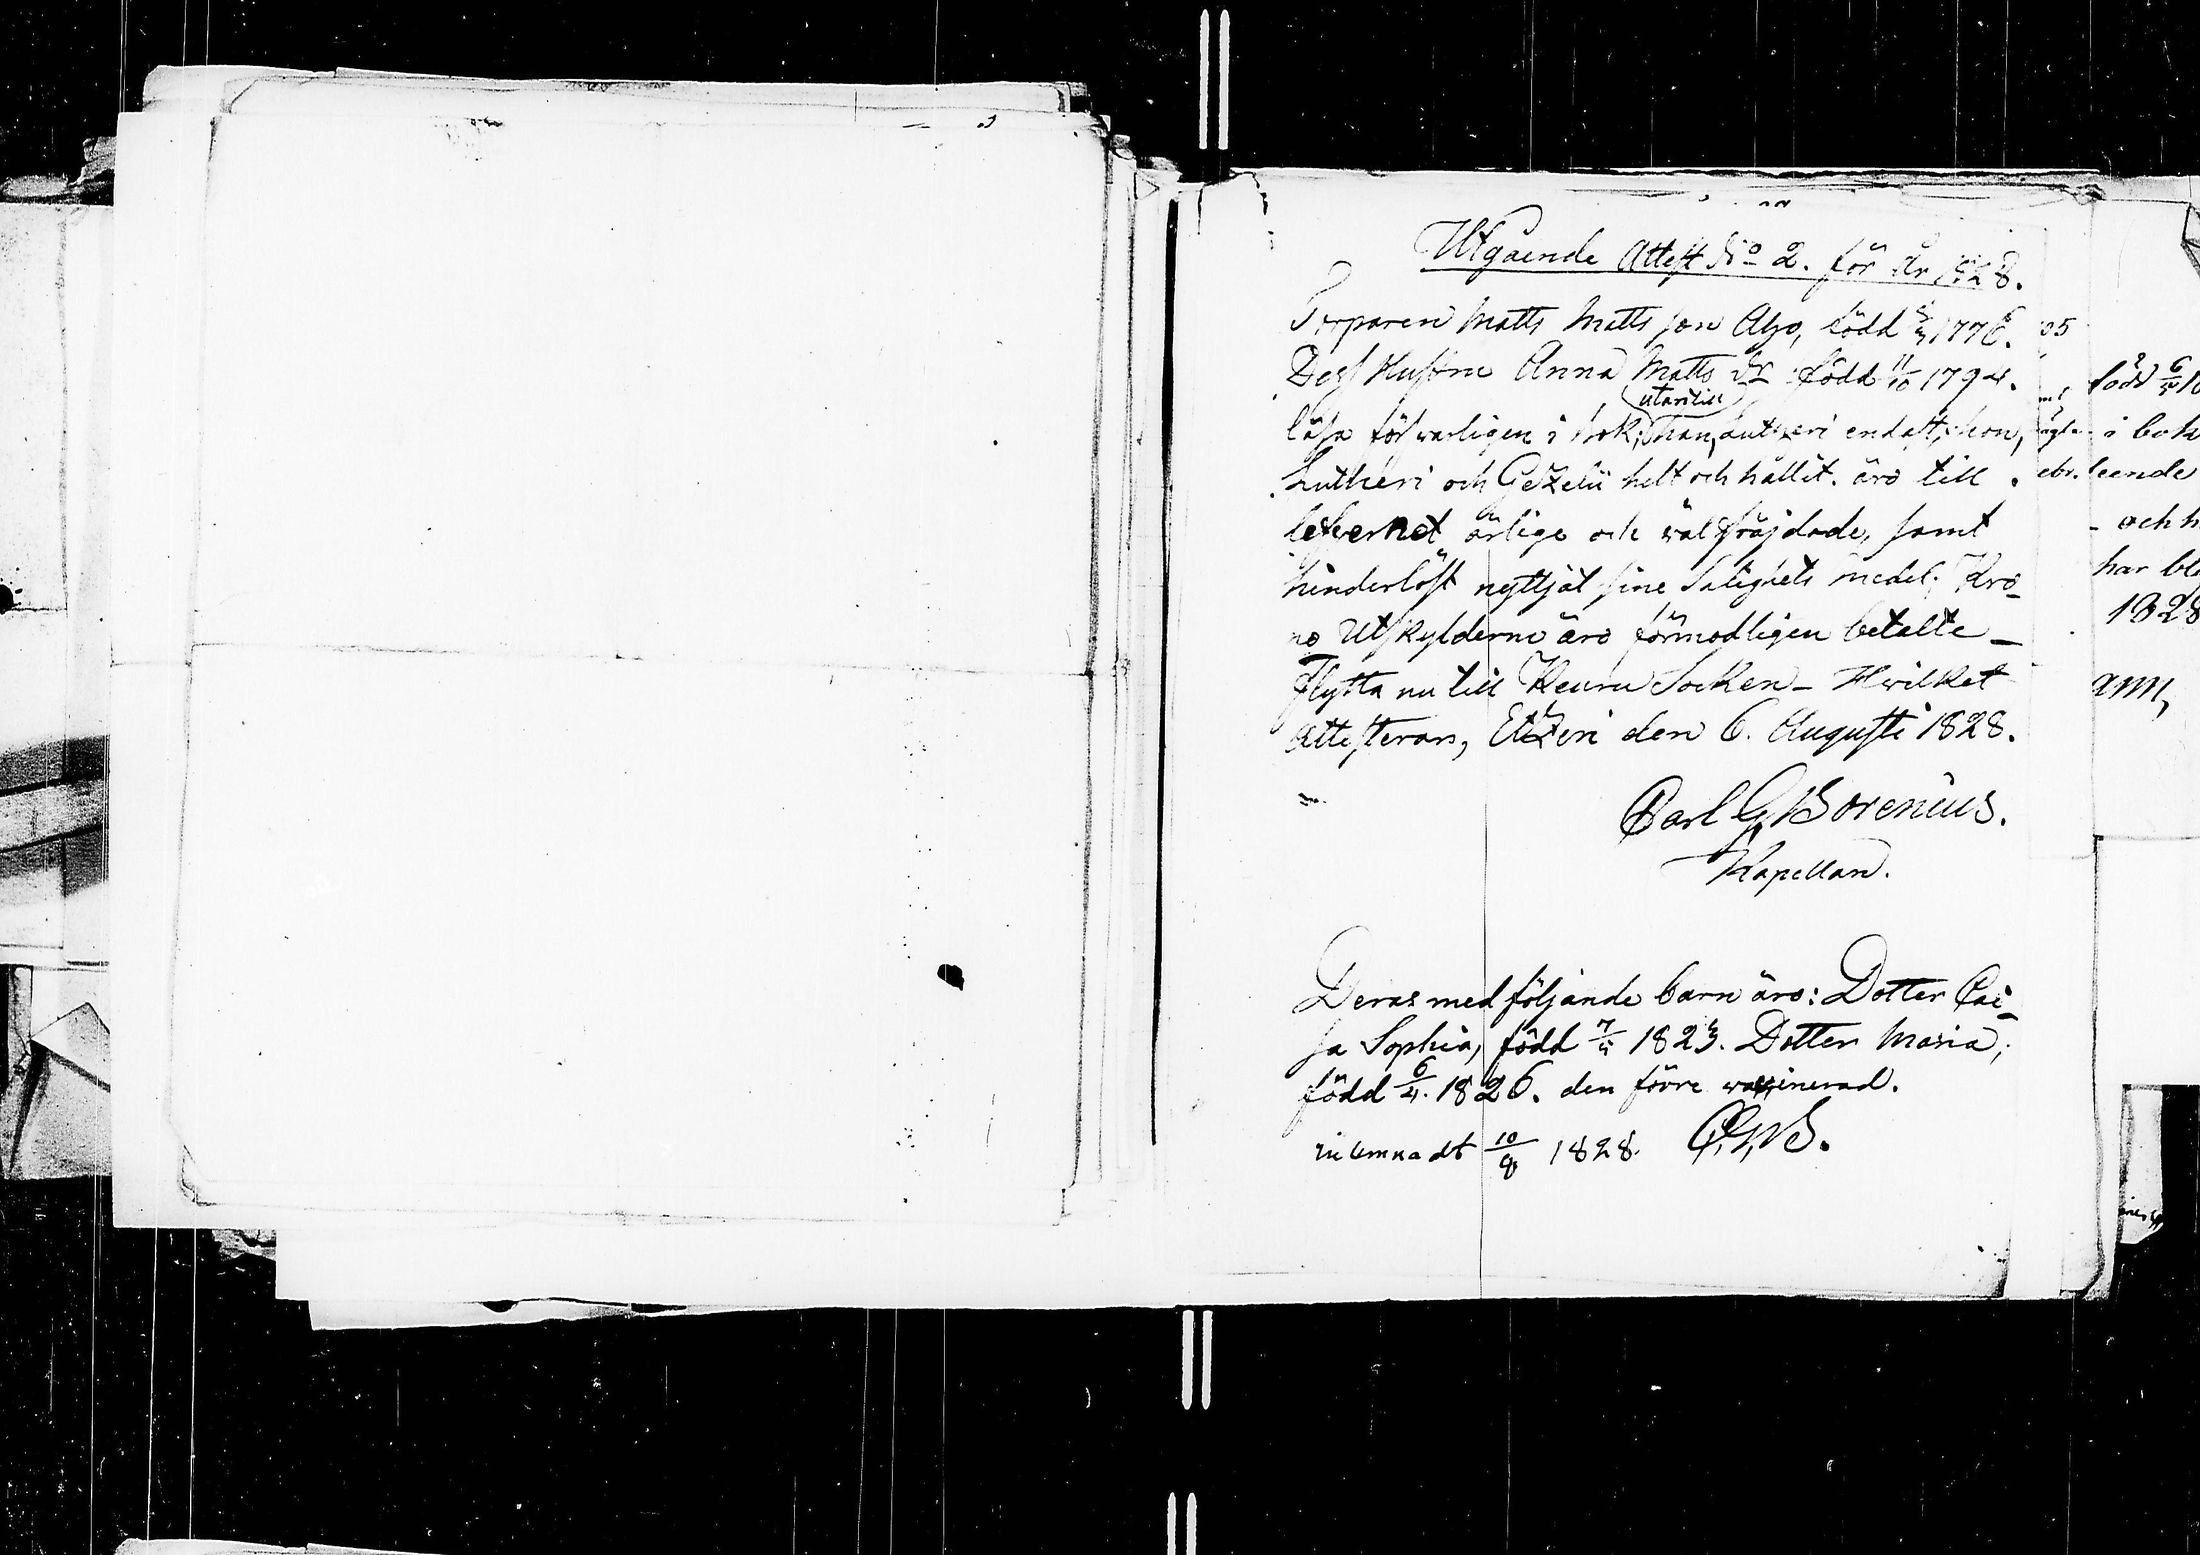 Utgående Attest No 2. för år 1828.
Torparen Matts Mattsson Aho, född 1776.
Dess Hustru Anna Matts dr född 11/10 1794.
utantill
läsa försvarligen i bok, han, Lutheri endast, hon,
Lutheri och Gezelii helt och hållit. äro till
lefvernet ärlige och välfräjdade, samt
hinderlöst nyttjat sine Salighets medel. Kro-
no Utskylderne äro förmodligen betalte_
Flytta nu till Keuru Socken_ Hvilket
Attesteras, Etzeri den 6. Augusti 1828.
Carl G Borenius.
Kapellan.
Deras medföljande barn äro: Dotter Cai-
sa Sophia, född 7/4 1823. Dotter Maria,
född 6/4. 1826. den förre waxinerad.
inlemnadt 10/8 1828. C.G.B.
05
född 6
i bok
ebr. leende
- och h
har ble
1828
amm,